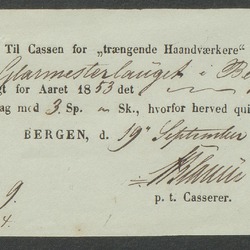 Til Cassen for „trængende Haandværkere“
Glarmesterlauget i Be
gt for Aaret 1853 det
ag med 3. Sp. Sk., hvorfor herved qui
BERGEN, d. 19 September
p. t. Casserer.
9.
4.